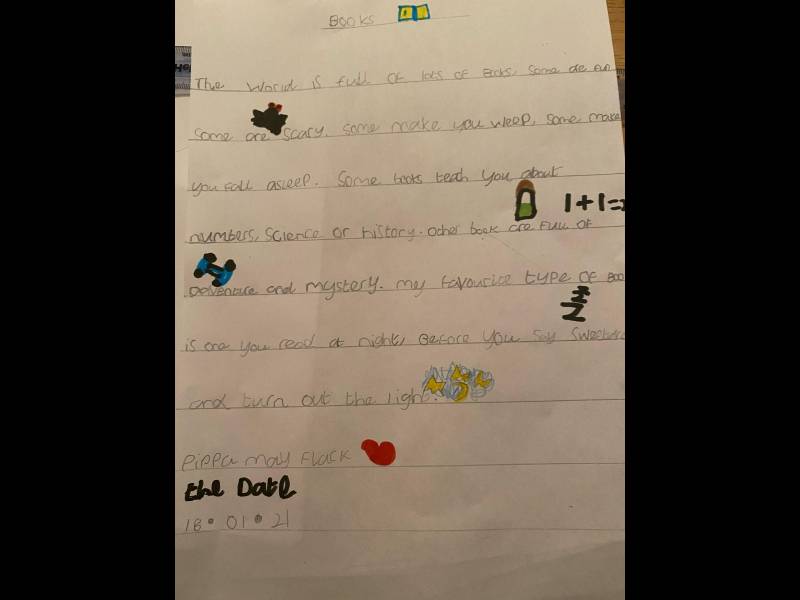 Books
The World is full of lots of Books, some are fun
some are scary. some make you weep, some make
you fall asleep. Some books teach you about
1+1=
numbers, science or history. other book are full of
adventure and mystery. my favourite type of Boo
is one you read at night, Before you say sweet
and turn out the light.
Pippa may Flack
the Date
18 • 01 • 21